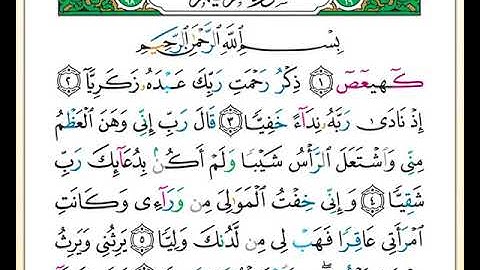 بِسْمِ ٱللَّهِ ٱلرَّحْمَٰنِ ٱلرَّحِيمِ
كٓهيعٓصٓ ١ ذِكْرُ رَحْمَتِ رَبِّكَ عَبْدَهُۥ زَكَرِيَّآ ٢
إِذْ نَادَىٰ رَبَّهُۥ نِدَآءً خَفِيًّا ٣ قَالَ رَبِّ إِنِّى وَهَنَ ٱلْعَظْمُ
مِنِّى وَٱشْتَعَلَ ٱلرَّأْسُ شَيْبًا وَلَمْ أَكُنۢ بِدُعَآئِكَ رَبِّ
شَقِيًّا ٤ وَإِنِّى خِفْتُ ٱلْمَوَٰلِىَ مِن وَرَآءِى وَكَانَتِ
ٱمْرَأَتِى عَاقِرًا فَهَبْ لِى مِن لَّدُنكَ وَلِيًّا ٥ يَرِثُنِى وَيَرِثُ